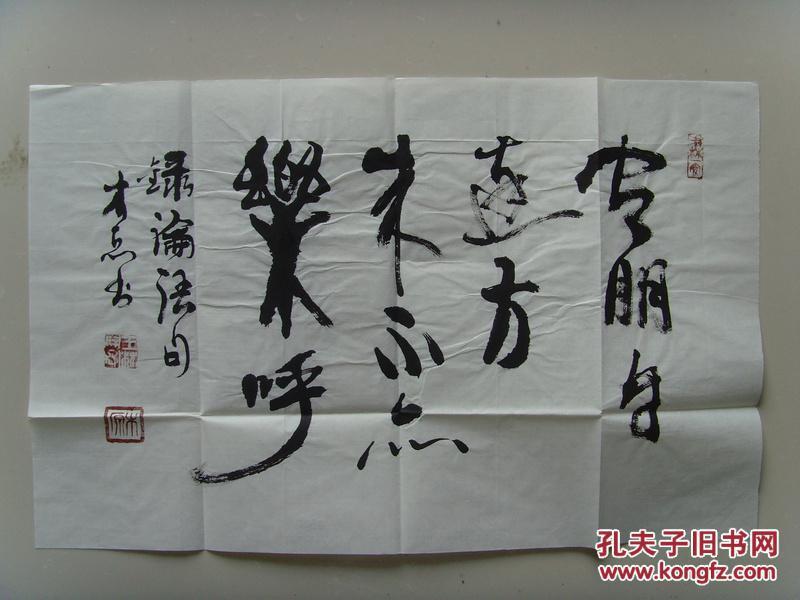 有朋自
遠方
来不亦
樂呼
録論語句
书
孔夫子旧书网
www.kongfz.com